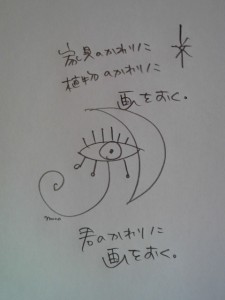 家具のかわりに
植物のかわりに
画をおく。
君のかわりに
画をおく。